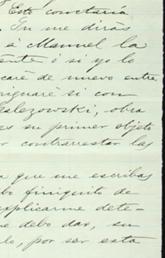 Esto constaría
Tu me dirás
si Manuel la
ente ó si yo le
caré de nuevo entre
riguaré si con
alezowski, obra
es su primer objeto
contrarrestar las
a que me escribas
lo finiquito de
xplicarme dete-
e debo dar, su
lo, por ser esta